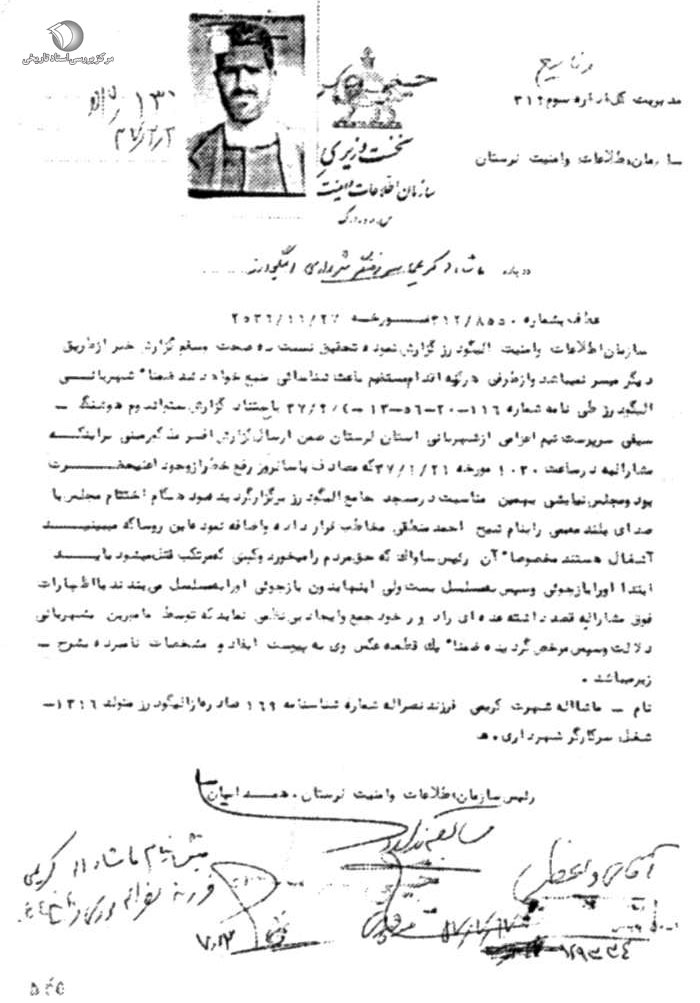 مرکز بررسی اسناد تاریخی
مدیریت کل اداره سوم ۳۱۲
سازمان اطلاعات و امنیت لرستان
نخست وزیری
سازمان اطلاعات و امنیت کشور
درباره ماشااله کریمی شهرداری الیگودرز
عطف بشماره ۳۱۲/۸۵۵۰ مورخه ۲۵۳۶/۱۱/۲۷
سازمان اطلاعات و امنیت الیگودرز گزارش نموده تحقیق نسبت به صحت و سقم گزارش خبر از طریق
دیگر میسر نمیباشد و از طرفی هرگونه اقدام مستقیم باعث شناسائی منبع خواهد شد ضمنا" شهربانی
الیگودرز طی نامه شماره ۱۱۶-۲۰-۵۶-۱۳-۳۷/۲/۴ باستناد گزارش ستواندوم هوشنگ -
سیفی سرپرست تیم اعزامی از شهربانی استان لرستان ضمن ارسال گزارش افسر مذکور مبنی براینکه
مشارالیه در ساعت ۱۰۳۰ مورخه ۳۷/۱/۲۱ که مصادف با سالروز رفع خطر از وجود اعلیحضرت
بود و مجلس نیایشی بهمین مناسبت در مسجد جامع الیگودرز برگزار گردیده بود هنگام اختتام مجلس با
صدای بلند معممی را بنام شیخ احمد منطقی مخاطب قرار داده و اضافه نمود این روسا که میبینید
آشغال هستند مخصوصا" آن رئیس ساواک که حق مردم را میخورد و کسی که مرتکب قتل میشود باید
ابتدا او را بازجوئی و سپس به مسلسل بست ولی اینها بدون بازجوئی او را به مسلسل می بندند با اظهارات
فوق مشارالیه قصد داشته عده ای را دور خود جمع و ایجاد بی نظمی نماید که توسط مامورین شهربانی
دلالت و سپس مرخص گردیده ضمنا" یک قطعه عکس وی به پیوست ایفاد و مشخصات نامبرده بشرح -
زیر میباشد.
نام - ماشااله شهرت کریمی فرزند نصراله شماره شناسنامه ۱۶۹ صادره از الیگودرز متولد ۱۳۱۶-
شغل سرکارگر شهرداری. ه
رئیس سازمان اطلاعات و امنیت لرستان.
سابقه ندارد
ماشااله کریمی
فرزند
آقای
۷/۱۳